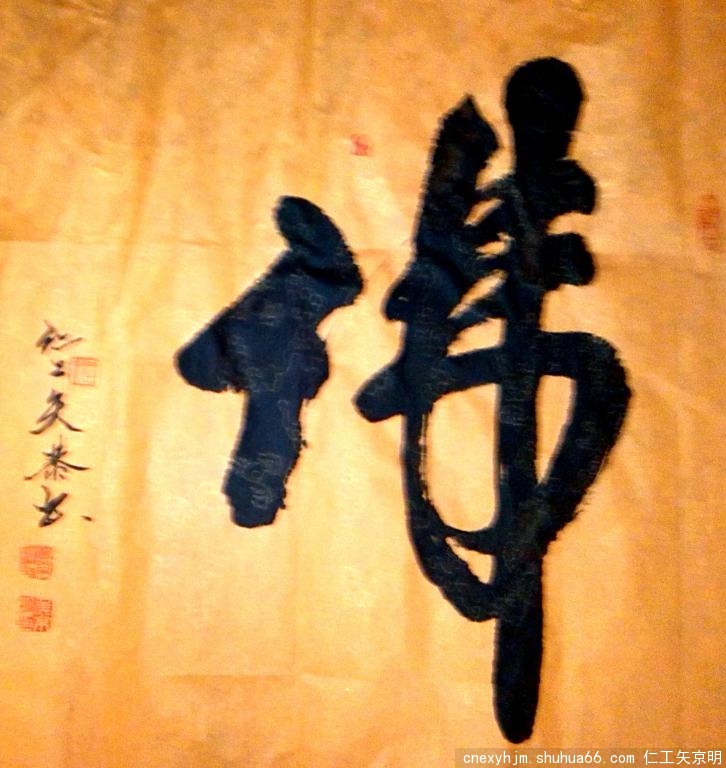 禅
仁工矢恭书
cnexyhjm.shuhua66.com 仁工矢京明